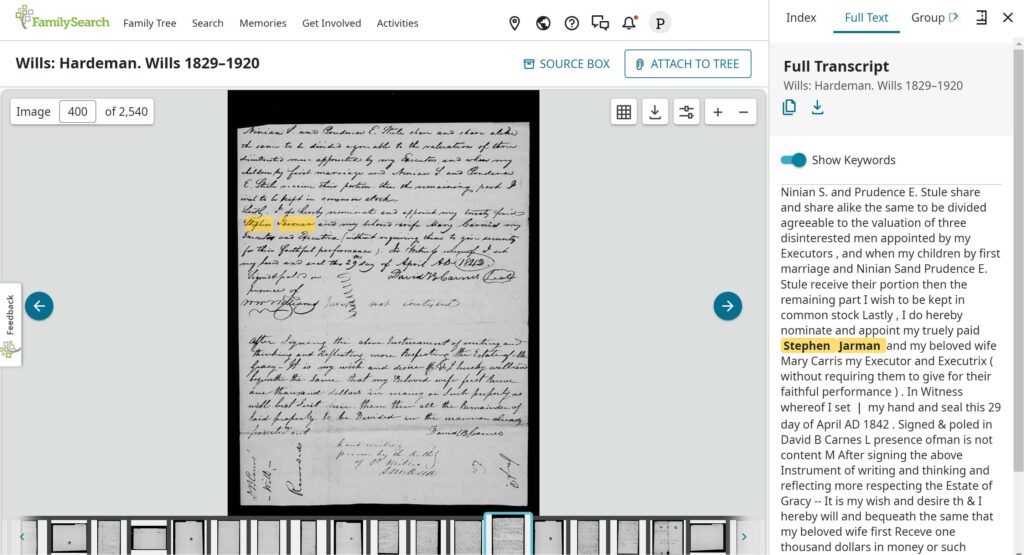 FamilySearch
Family Tree
Search
Memories
Get Involved
Activities
P
Wills: Hardeman. Wills 1829–1920
SOURCE BOX
ATTACH TO TREE
Image 400 of 2,540
Feedback
Ninian S. and Prudence E. Stule share and share alike
the same to be divided agreeable to the valuation of three
disinterested men appointed by my Executors and when my
children by first marriage and Ninian S and Prudence
E. Stule receive their portion then the remaining part I
wish to be kept in common stock.
Lastly, I do hereby nominate and appoint my
Stephen Jarman and my beloved wife Mary Carnes my
Executor and Executrix (without requiring them to give security
for their faithful performance). In Witness whereof I set
my hand and seal this 29 day of April AD 1842.
David B Carnes Seal
presence of
not contested
After Signing the above Instrument of writing and
thinking and Reflecting more Respecting the Estate of
Gracy - It is my wish and desire & I hereby will and
bequeath the same that my Beloved wife first Receve
one thousand dollars in money or Such property as
will then all the Remainder of
said property to be Devided in the manner already
David B Carnes
D B Carnes
Will
Recorded
Index
Full Text
Group
Full Transcript
Wills: Hardeman. Wills 1829–1920
Show Keywords
Ninian S. and Prudence E. Stule share
and share alike the same to be divided
agreeable to the valuation of three
disinterested men appointed by my
Executors , and when my children by first
marriage and Ninian Sand Prudence E.
Stule receive their portion then the
remaining part I wish to be kept in
common stock Lastly , I do hereby
nominate and appoint my truely paid
Stephen Jarman and my beloved wife
Mary Carris my Executor and Executrix (
without requiring them to give for their
faithful performance ) . In Witness
whereof I set | my hand and seal this 29
day of April AD 1842 . Signed & poled in
David B Carnes L presence ofman is not
content M After signing the above
Instrument of writing and thinking and
reflecting more respecting the Estate of
Gracy -- It is my wish and desire th & I
hereby will and bequeath the same that
my beloved wife first Receve one
thousand dollars in money or such